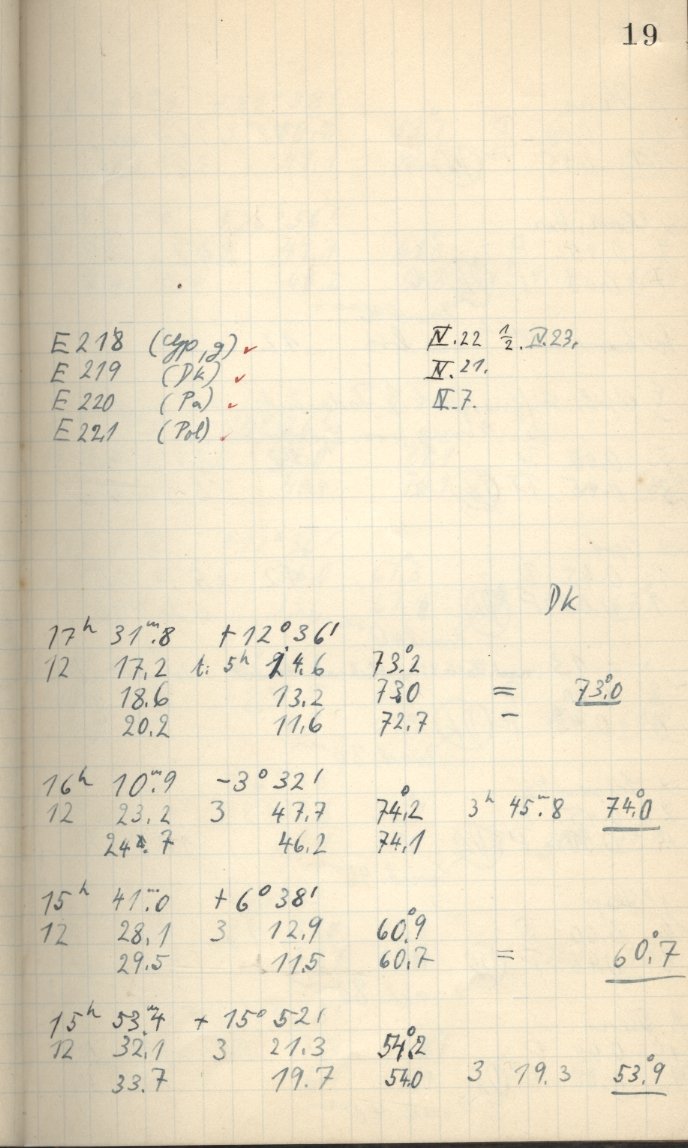 19
E 218 (Gp, g) ✓ IV.22 ½. IV.23.
E 219 (Dk) ✓ IV.21.
E 220 (Pa) ✓ IV.7.
E 221 (Pol) ✓
Dk
17ʰ 31ᵐ.8 +12°36'
12 17.2 t: 5ʰ 14.6 73°.2
18.6 13.2 73.0 = 73°.0
20.2 11.6 72.7 –
16ʰ 10ᵐ.9 -3°32'
12 23.2 3 47.7 74°.2 3ʰ 45ᵐ.8 74°.0
24.7 46.2 74.1
15ʰ 41ᵐ.0 +6°38'
12 28.1 3 12.9 60°.9
29.5 11.5 60.7 = 60°.7
15ʰ 53ᵐ.4 +15°52'
12 32.1 3 21.3 54°.2
33.7 19.7 54.0 3 19.3 53°.9